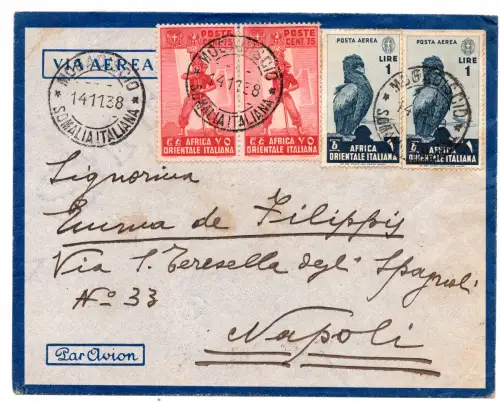 VIA AEREA
MOGADISCIO
14.11.38
SOMALIA ITALIANA
POSTE
CENT. 75
AFRICA
ORIENTALE ITALIANA
POSTE
CENT. 75
AFRICA
ORIENTALE ITALIANA
MOGADISCIO
14.11.38
SOMALIA ITALIANA
POSTA AEREA
LIRE
1
AFRICA
ORIENTALE ITALIANA
POSTA AEREA
LIRE
1
AFRICA
ORIENTALE ITALIANA
MOGADISCIO
Signorina
Emma de Filippis
Via S. Teresella degl' Spagnoli
N° 33
Napoli
Par Avion